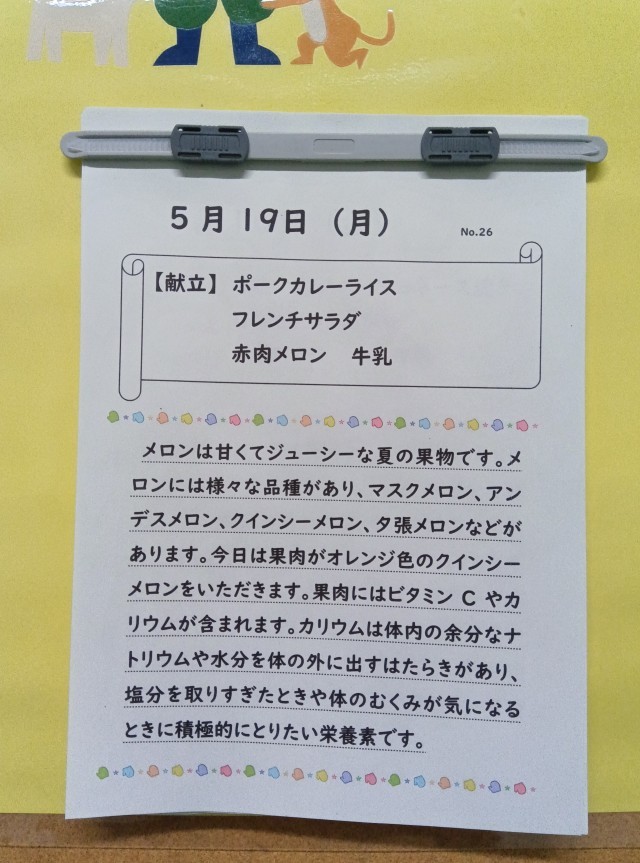 5月19日（月）
No.26
【献立】 ポークカレーライス
フレンチサラダ
赤肉メロン　牛乳
メロンは甘くてジューシーな夏の果物です。メ
ロンには様々な品種があり、マスクメロン、アン
デスメロン、クインシーメロン、夕張メロンなどが
あります。今日は果肉がオレンジ色のクインシー
メロンをいただきます。果肉にはビタミン C やカ
リウムが含まれます。カリウムは体内の余分なナ
トリウムや水分を体の外に出すはたらきがあり、
塩分を取りすぎたときや体のむくみが気になる
ときに積極的にとりたい栄養素です。